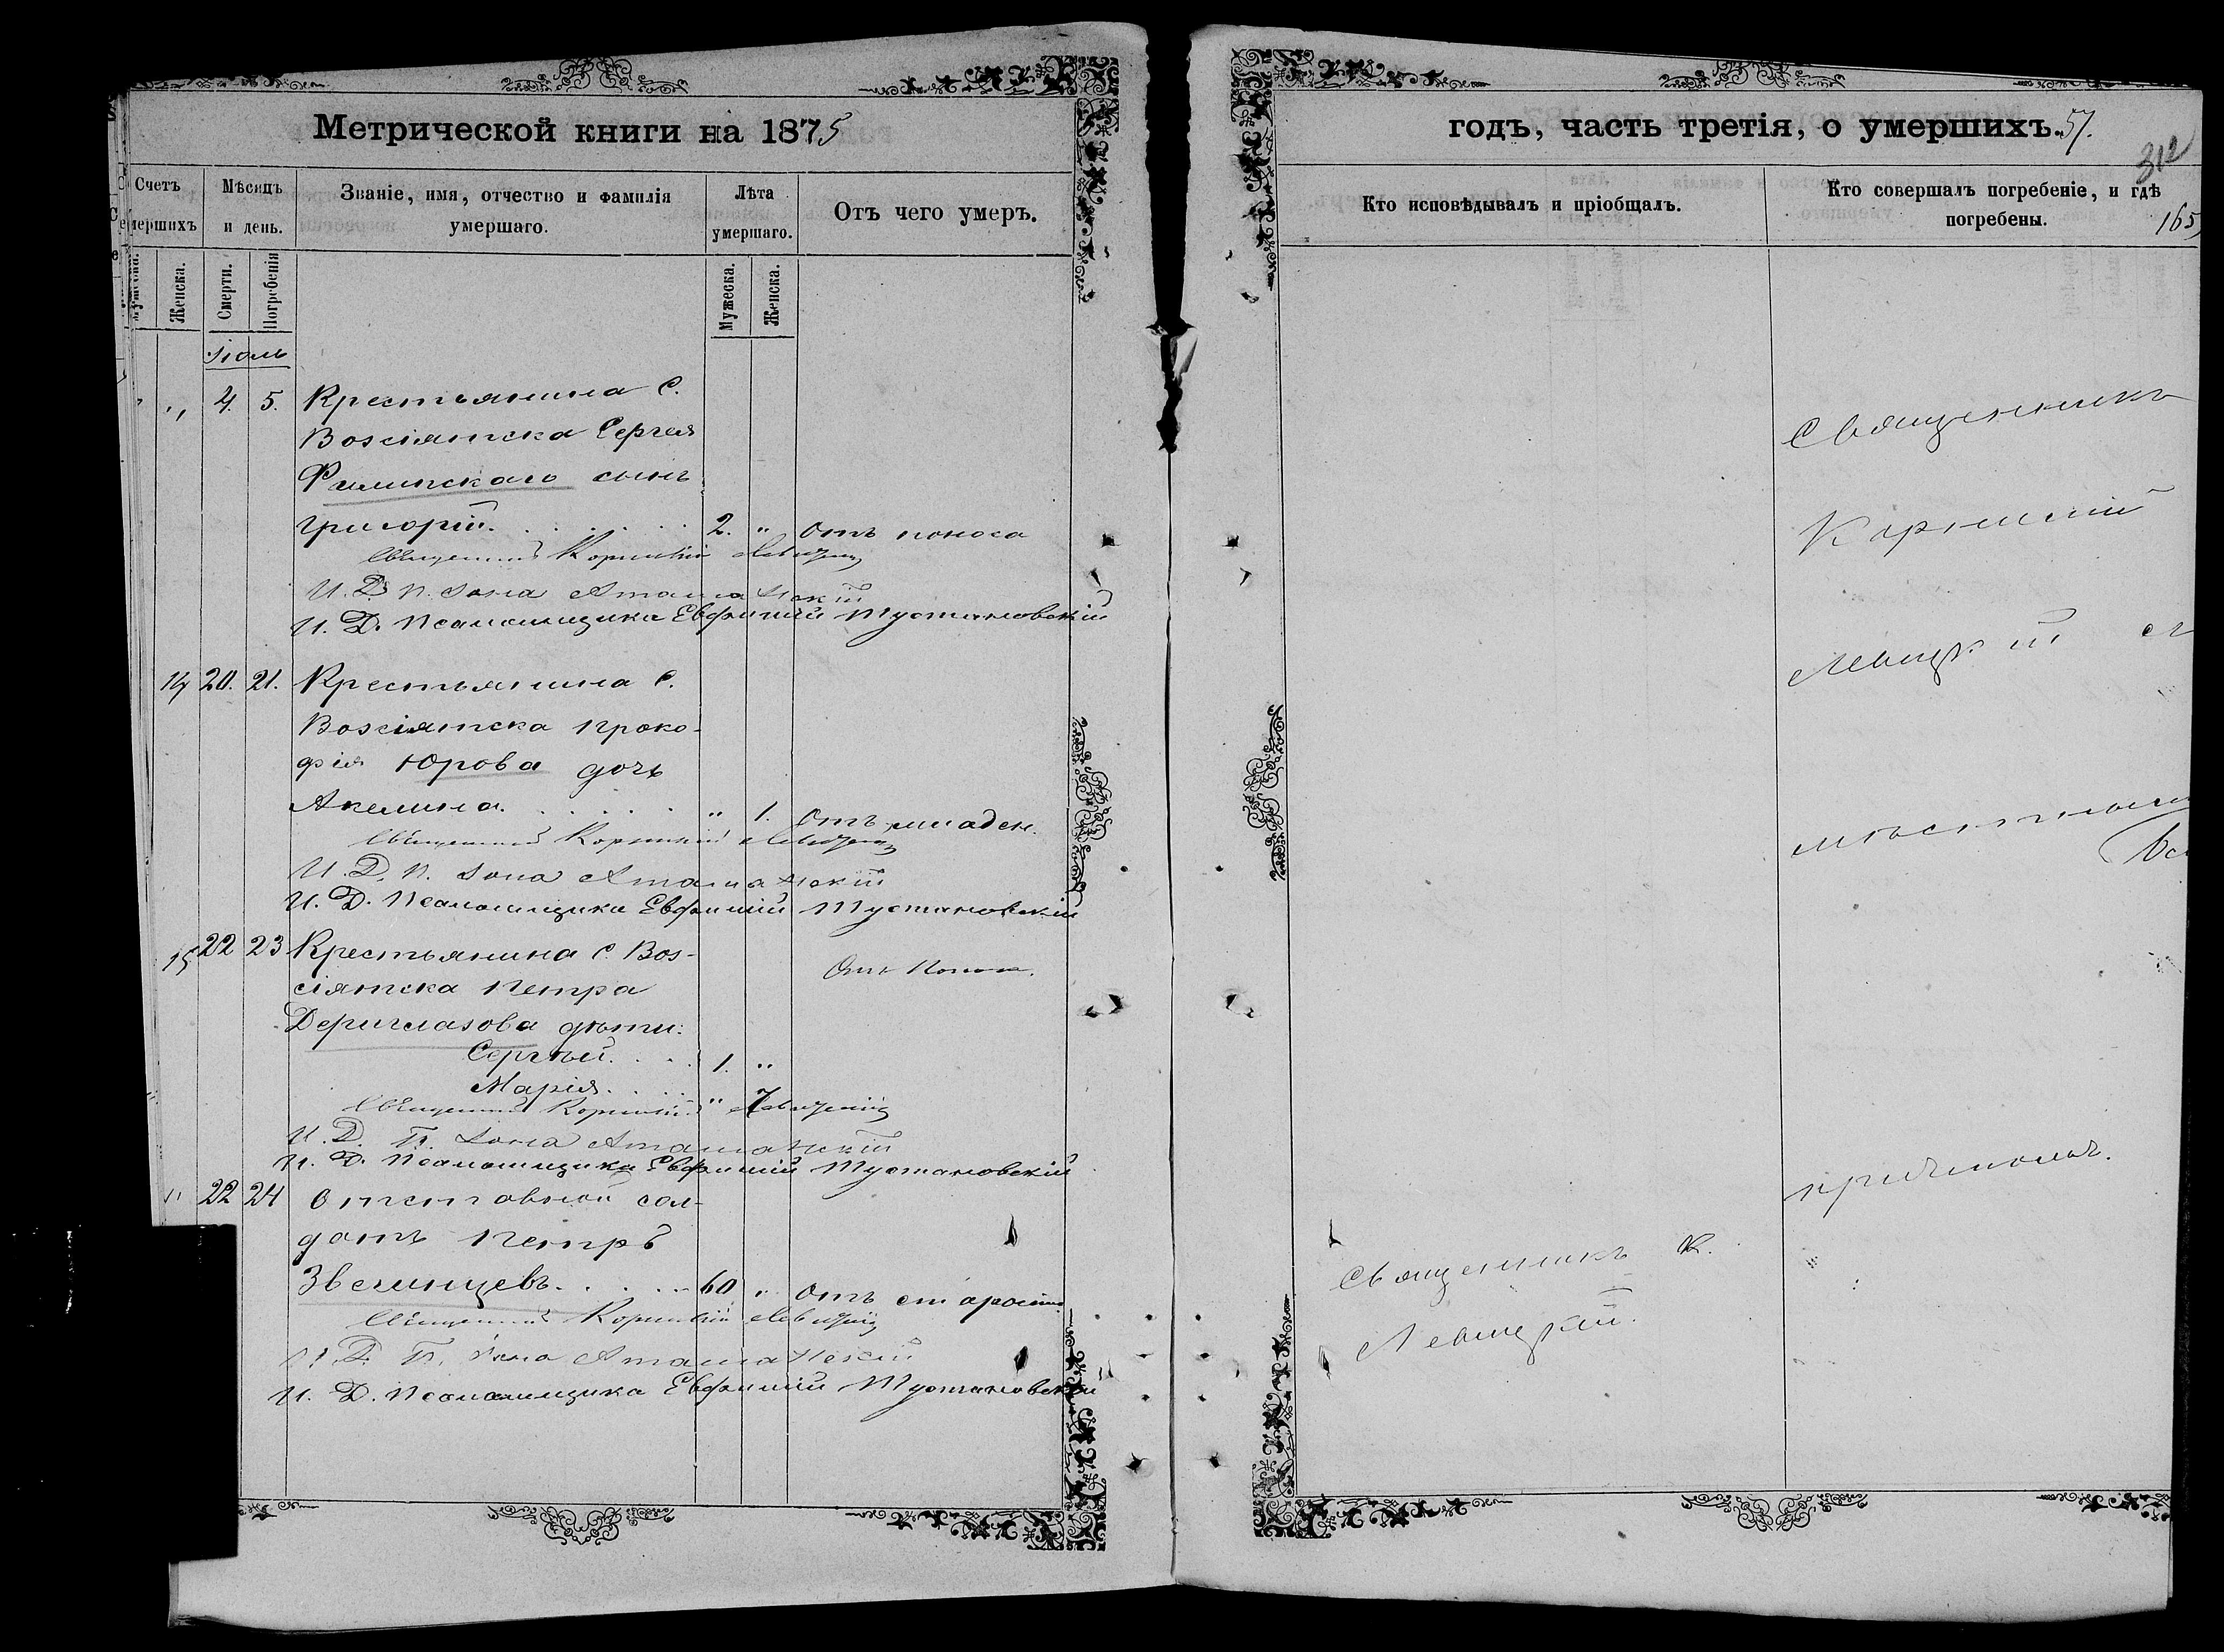 Метрической книги на 1875
Счетъ умершихъ
Мѣсяцъ и день.
Званіе, имя, отчество и фамилія умершаго.
Лѣта умершаго.
Отъ чего умеръ.
Женска.
Смерти.
Погребенія
Мужеска.
Женска.
Іюль
" 4. 5. Крестьянина С.
Вознятска Сергея
Филипскаго сынъ
Григорій. 2. " Отъ поноса
Священникъ Корнилій Левицкій
И. Д. П. Іона Атаманскій
И. Д. Псаломщика Евфимій Тустановскій
14 20. 21. Крестьянина С.
Возсіятска Проко-
фія Юрова дочь
Акелина. " 1. Отъ младен.
Священникъ Корнилій Левицкій
И. Д. П. Іона Атаманскій
И. Д. Псаломщика Евфимій Тустановскій
15 22 23 Крестьянина С. Воз-
сіятска Петра
Дериглазова дѣти:
Сергѣй. 1. "
Марія. " 7
Отъ поноса.
Священникъ Корнилій Левицкій
И. Д. П. Іона Атаманскій
И. Д. Псаломщика Евфимій Тустановскій
" 22 24 Отставной сол-
датъ Петръ
Звегинцевъ. 60 " Отъ старости
Священникъ Корнилій Левицкій
И. Д. П. Іона Атаманскій
И. Д. Псаломщика Евфимій Тустановскій
годъ, часть третія, о умершихъ. 57.
312
Кто исповѣдывалъ и пріобщалъ.
Кто совершалъ погребеніе, и гдѣ погребены.
165
Священникъ
Корнилій
Левицкій
причтомъ.
Священникъ К.
Левицкій.